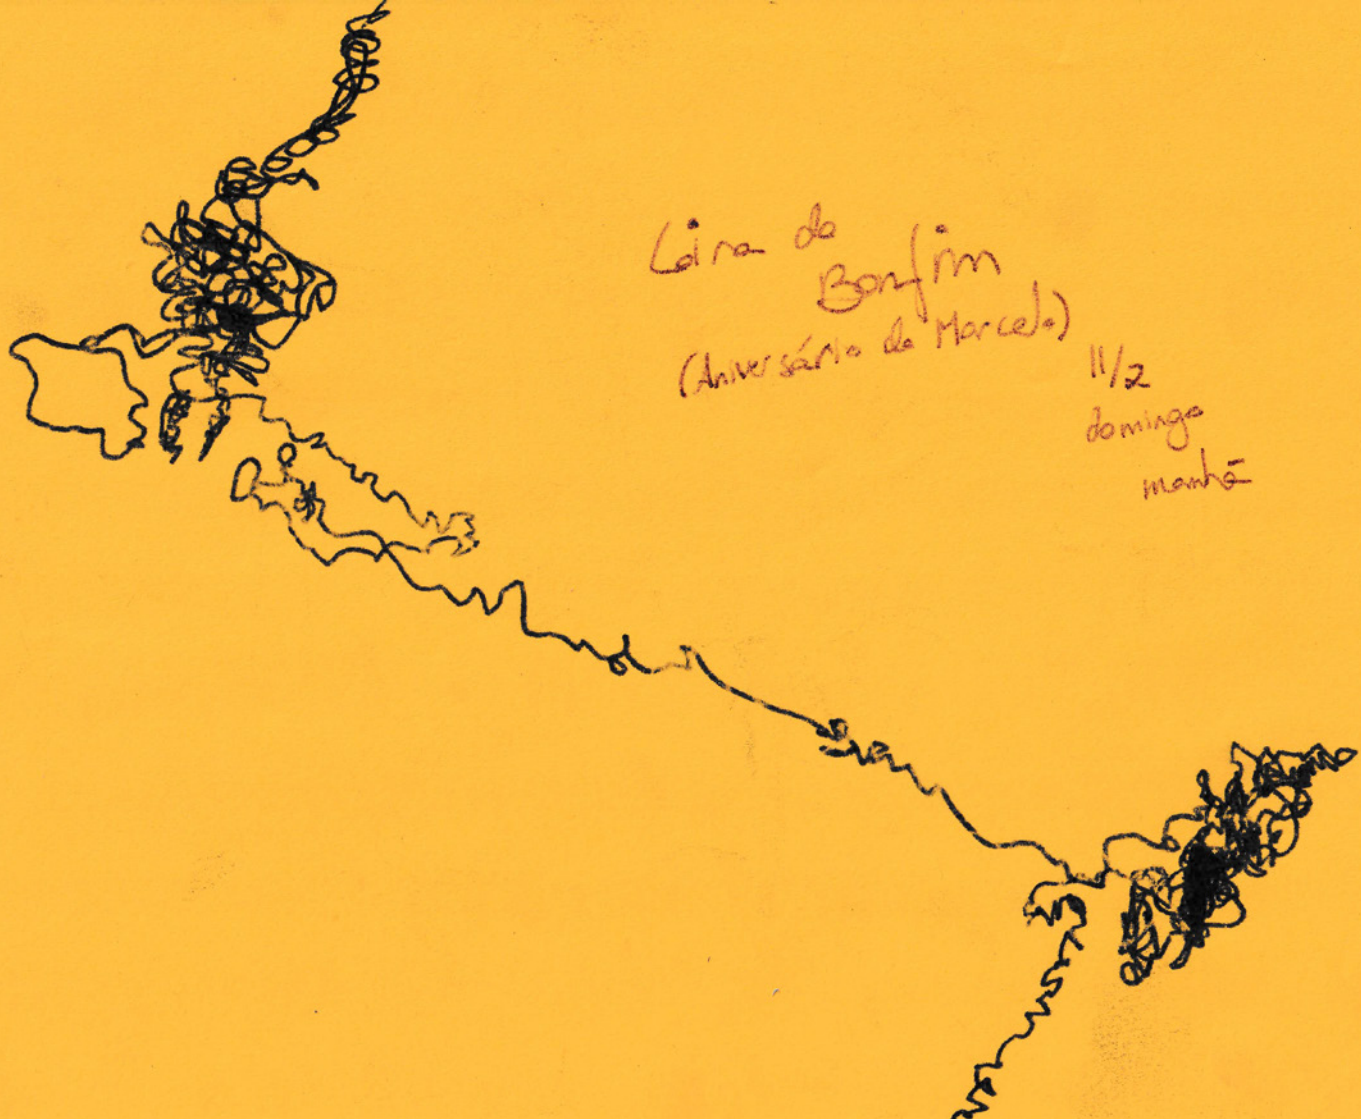 Loira do
Bonfim
(Aniversário do Marcelo)
11/2
domingo
manhã